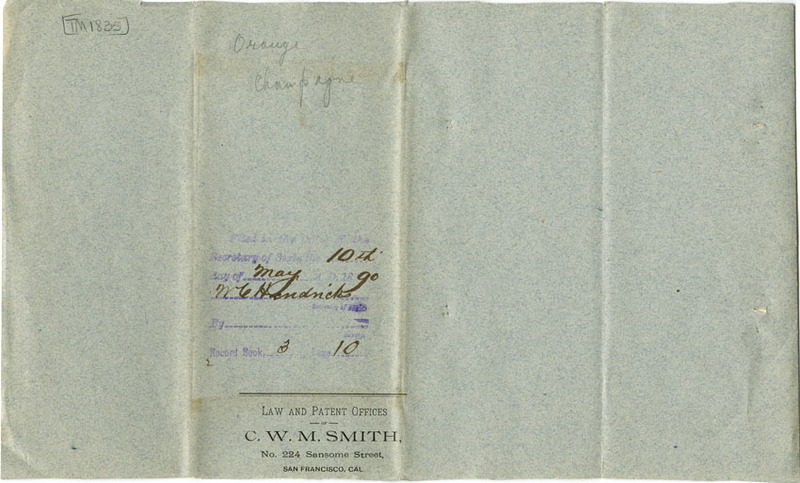 TM1835
Orange
Champagne
Filed in the Office of the
Secretary of State the 10th
day of May A.D. 1890
W C Hendricks
Secretary of State
By
Record Book 3 Page 10
LAW AND PATENT OFFICES
—OF—
C. W. M. SMITH,
No. 224 Sansome Street,
SAN FRANCISCO, CAL